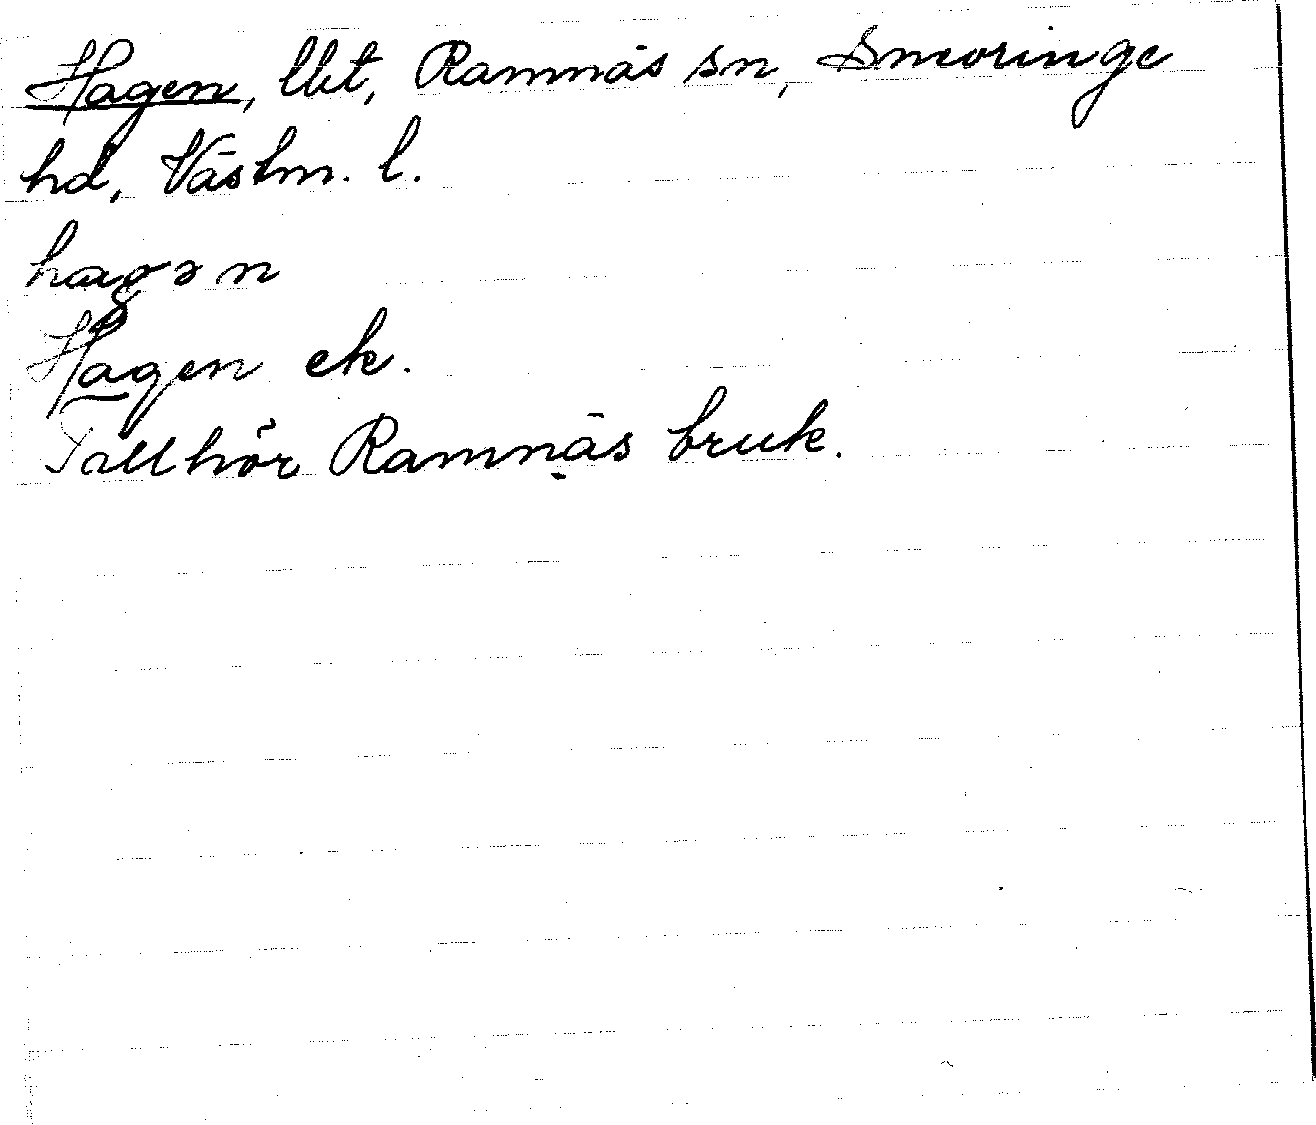 Hagen, lht, Ramnäs sn, Snevringe
hd, Västm. l.
hagən
Hagen ek.
Tillhör Ramnäs bruk.